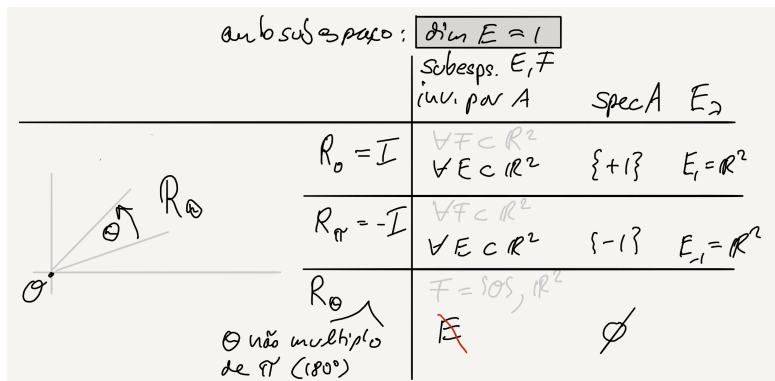 autosubespaço: dim E = 1
subesps. E, F
inv. por A spec A E_λ
R_0 = I ∀F ⊂ ℝ²
∀E ⊂ ℝ² {+1} E_1 = ℝ²
R_θ
θ
R_π = -I ∀F ⊂ ℝ²
∀E ⊂ ℝ² {-1} E_-1 = ℝ²
O
R_θ F = {0}, ℝ²
θ não multiplo E ∅
de π (180º)